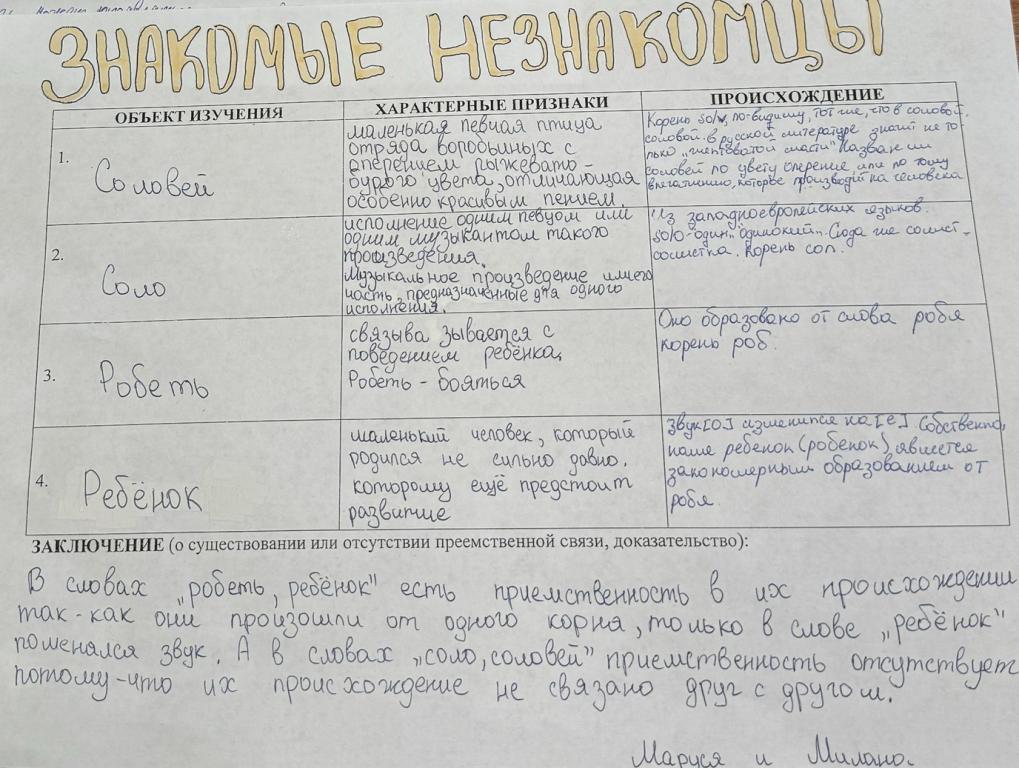 ЗНАКОМЫЕ НЕЗНАКОМЦЫ
ОБЪЕКТ ИЗУЧЕНИЯ
ХАРАКТЕРНЫЕ ПРИЗНАКИ
ПРОИСХОЖДЕНИЕ
1.
Соловей
маленькая певчая птица
отряда воробьиных с
оперением рыжевато-
бурого цвета, отличающая
особенно красивым пением.
Корень solv, по-видимому, тот же, что в соловой.
соловой. в русской литературе значит не то-
лько масти" Назван ли
соловей по цвету оперение или по тому
впечатлению, которое производй на человека
2.
Соло
исполнение одним певцом или
одним музыкантом такого
произведения.
Музыкальное произведение или его
часть, предназначенные для одного
исполнения.
Из западноевропейских языков.
solo-один "одинокий". Сюда же солист-
солистка. Корень сол.
3.
Робеть
связыва зывается с
поведением ребёнка.
Робеть - бояться
Оно образовано от слова робя
корень роб.
4.
Ребёнок
маленький человек, который
родился не сильно давно.
которому ещё предстоит
развитие
Звук[о] изменился на[е] Собственно,
наше ребенок (робенок), является
закономерным образованием от
робя.
ЗАКЛЮЧЕНИЕ (о существовании или отсутствии преемственной связи, доказательство):
В словах „робеть, ребёнок" есть приемственность в их происхождении
так-как они произошли от одного корня, только в слове „ребёнок"
поменялся звук. А в словах „соло, соловей" приемственность отсутствует
потому-что их происхождение не связано друг с другом.
Маруся и Милана.